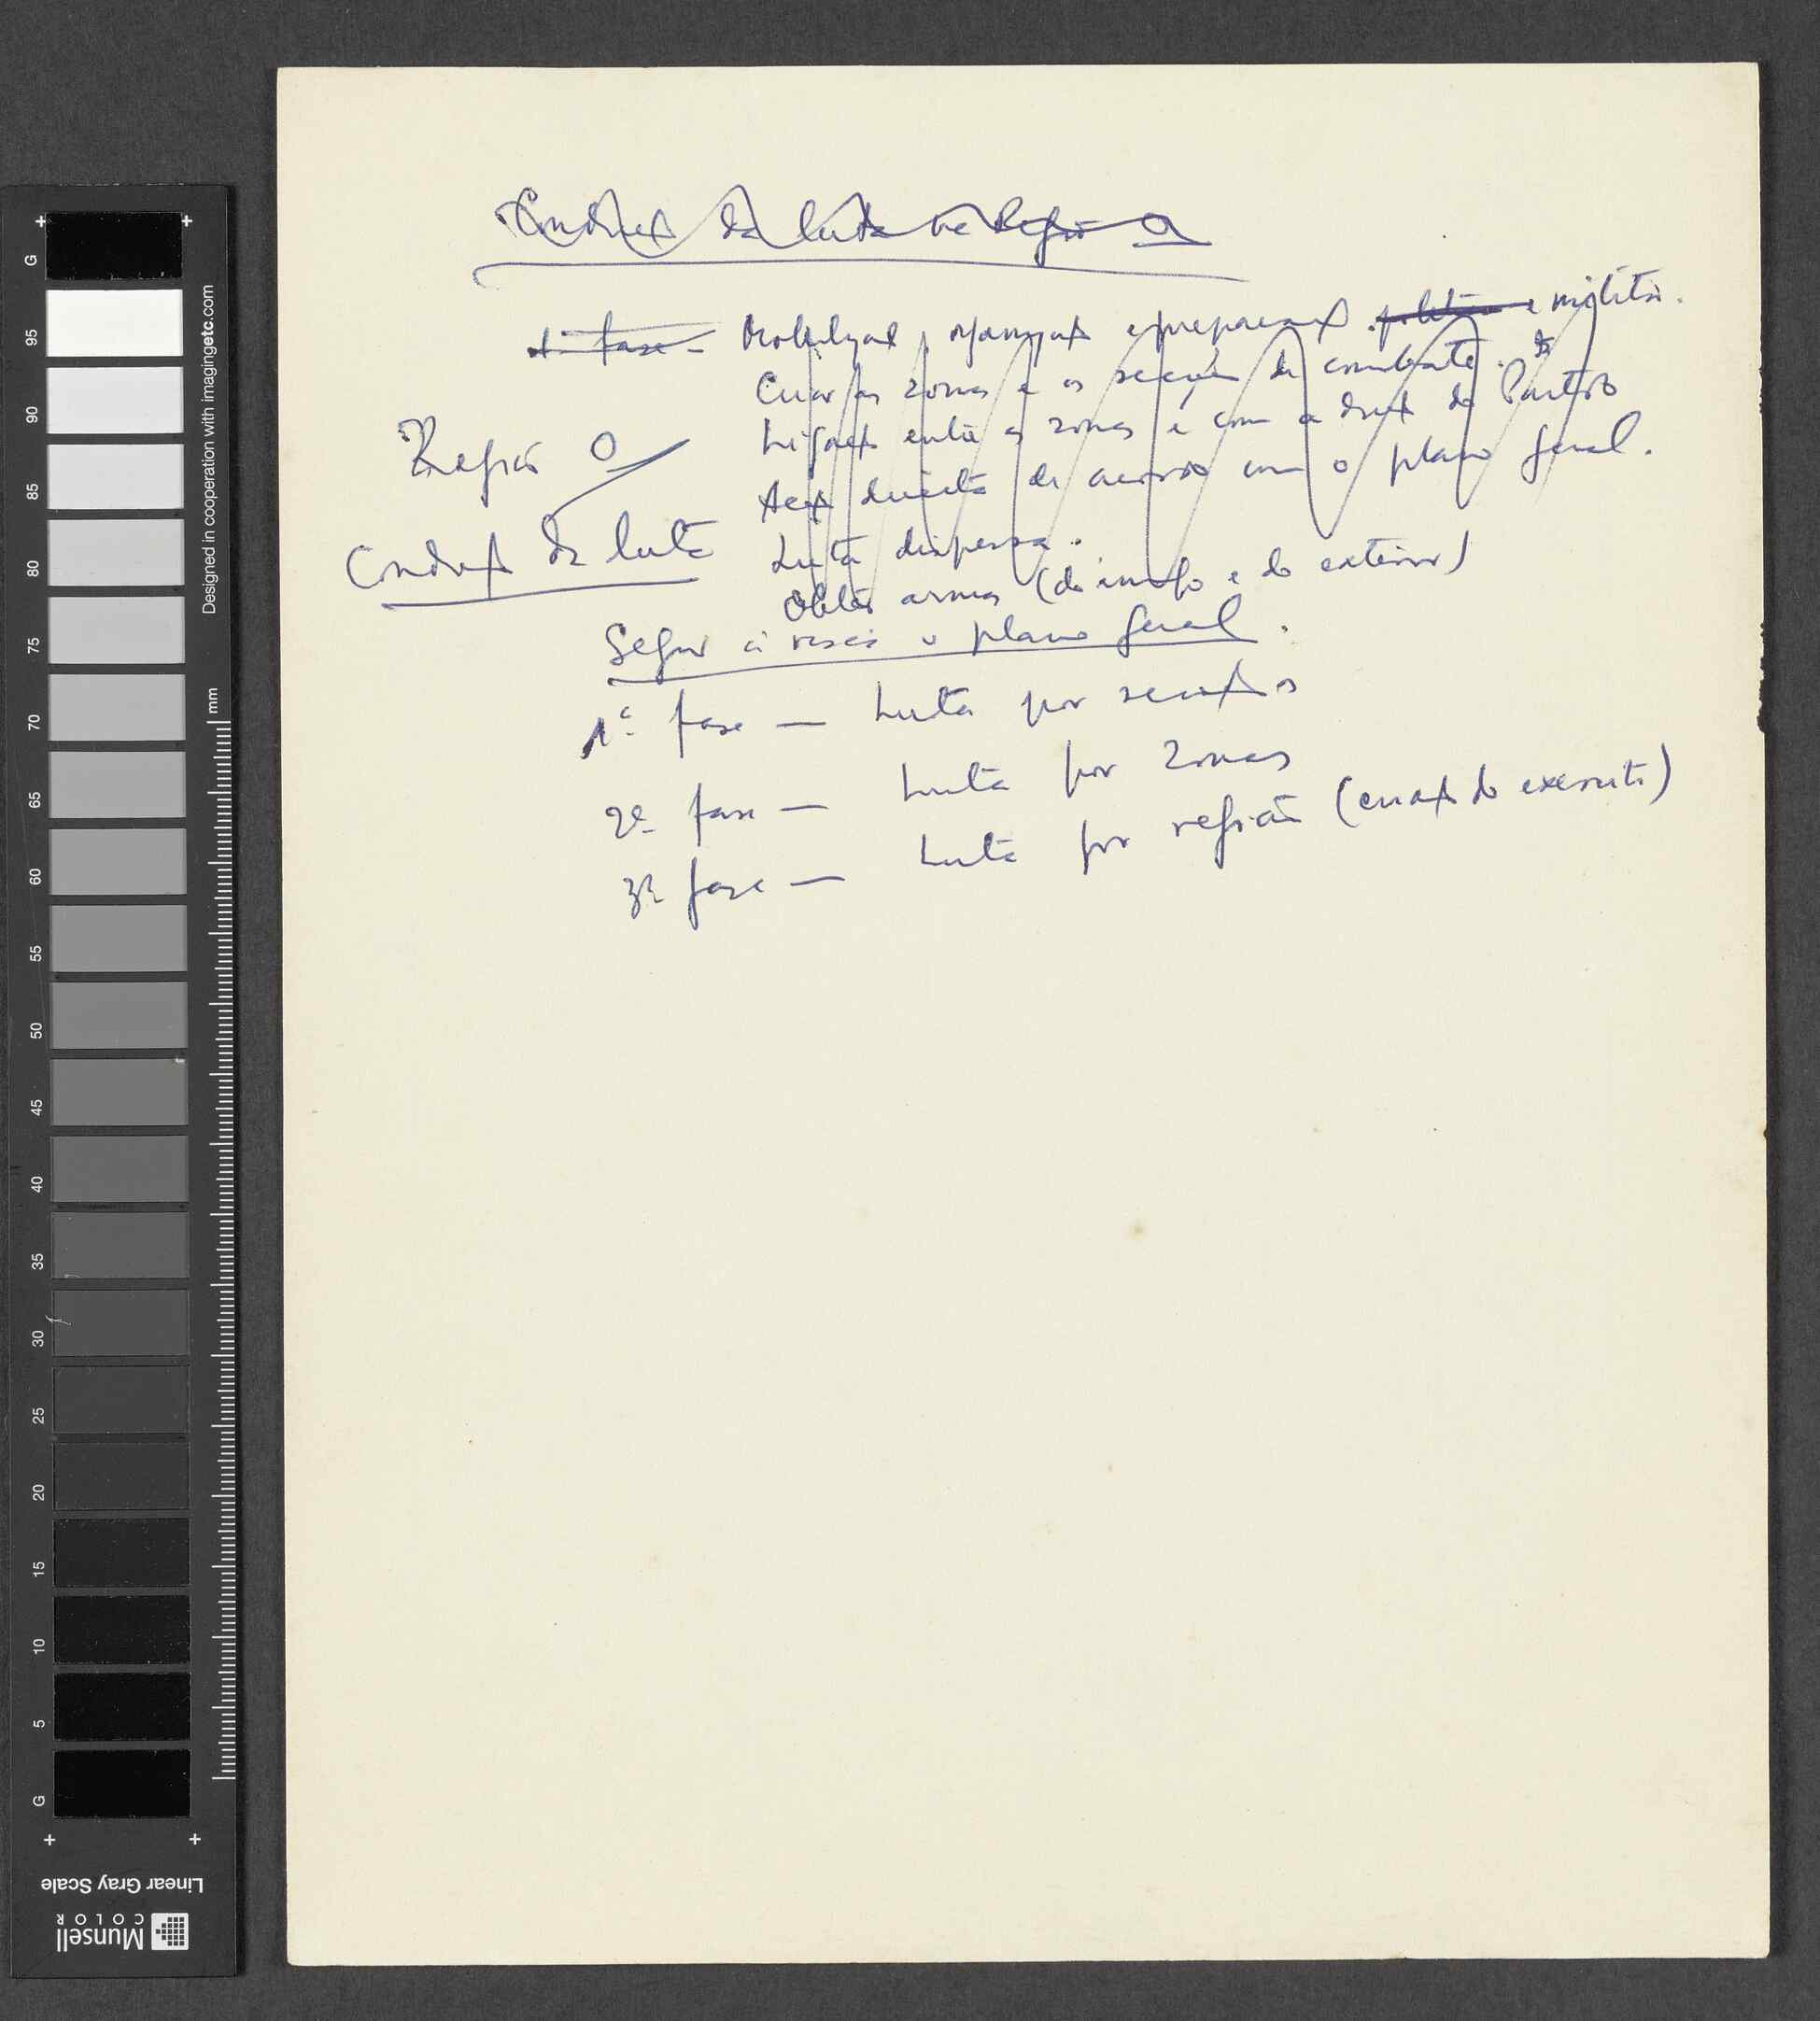 Condução da luta na Região O
1ª fase - Mobilização, organização e preparação política e militar.
Criar as zonas e as secções de combate.
Ligação entre as zonas e com a direcção do Partido
Região O
Acção directa de acordo com o plano geral.
Condução da luta
Luta dispersa.
Obter armas (do inimigo e do exterior)
Seguir à risca o plano geral.
1ª fase — Luta por secções
2ª fase — Luta por zonas
3ª fase — Luta por região (criação do exército)
G
95
90
85
80
75
70
65
60
55
50
45
40
35
30
25
20
15
10
5
G
mm
Designed in cooperation with imagingetc.com
Linear Gray Scale
Munsell
COLOR